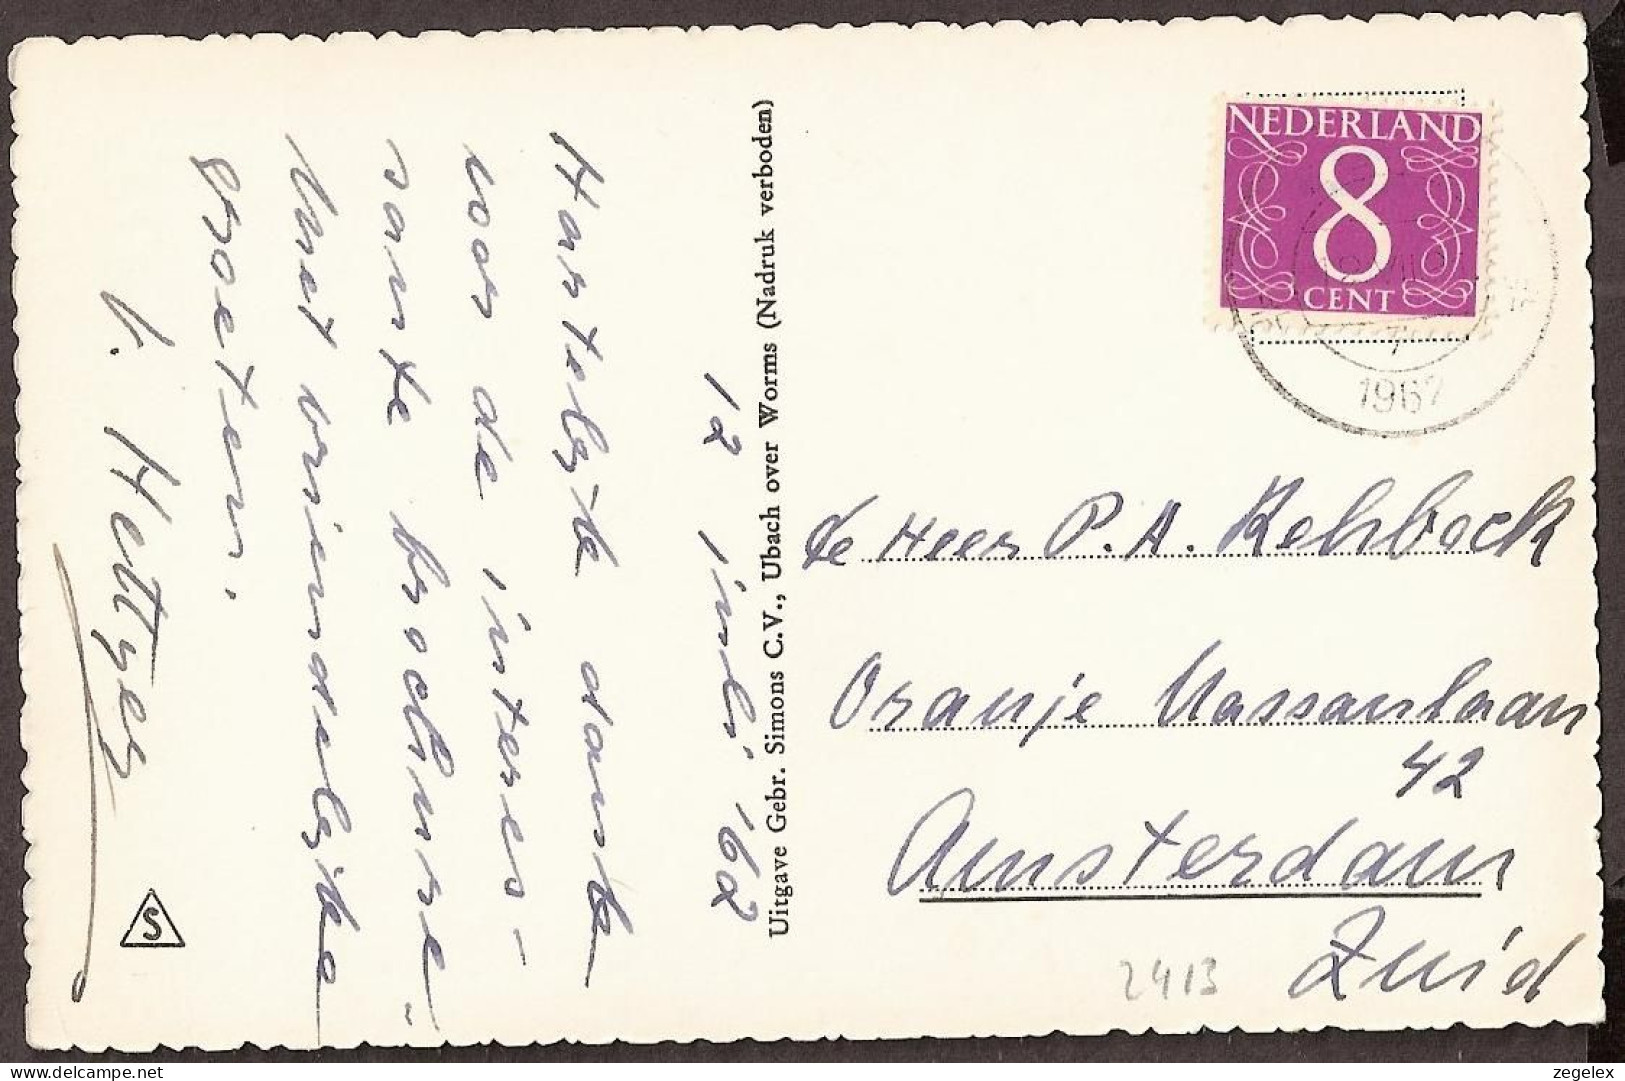 12 juli '62
Hartelijke dank
voor de interes-
sante brochure.
Met vriendelijke
groeten.
J. Hettyey
S
Uitgave Gebr. Simons C.V., Ubach over Worms (Nadruk verboden)
NEDERLAND
8
CENT
7
1962
de Heer P. A. Rehbock
Oranje Nassaulaan
42
Amsterdam
Zuid
2413
© delcampe.net
zegelex